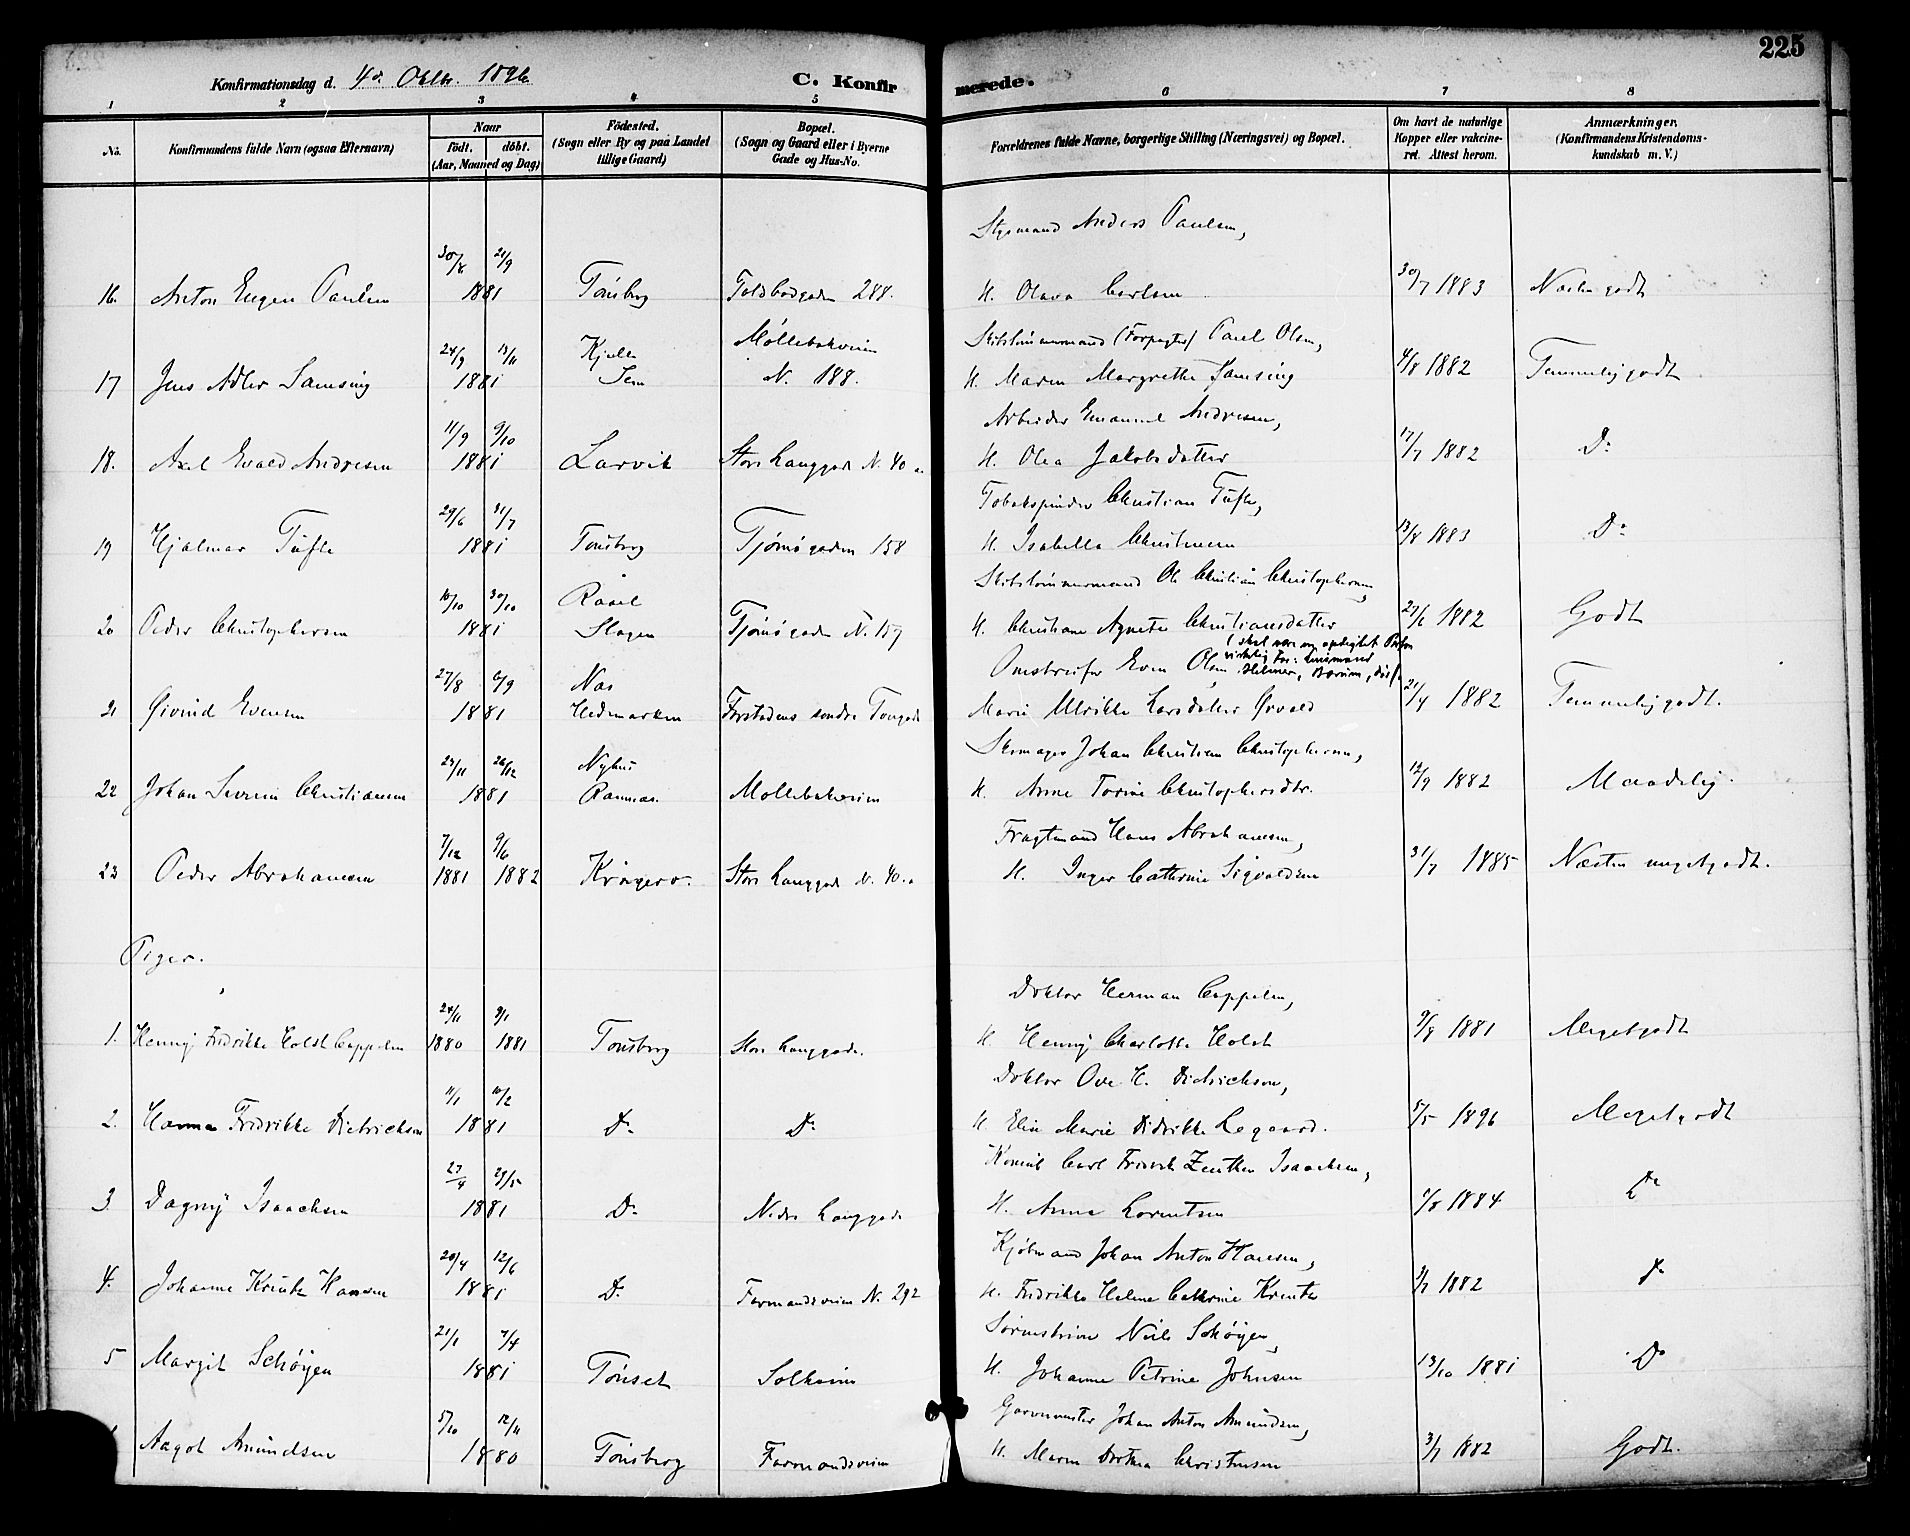 225
Konfirmationsdag d. 4de Oktbr. 1896
C. Konfir
merede.
1 2 3 4 5 6 7 8
No.
Konfirmandens fulde Navn (ogsaa Efternavn)
Naar
födt. döbt.
(Aar, Maaned og Dag)
Födested.
(Sogn eller By og paa Landet
tillige Gaard)
Bopæl.
(Sogn og Gaard eller i Byerne
Gade og Hus-No.
Forældrenes fulde Navne, borgerlige Stilling (Næringsvei) og Bopæl.
Om havt de naturlige
Kopper eller vakcine-
ret. Attest herom.
Anmærkninger.
(Konfirmandens Kristendoms-
kundskab m. V.)
Styrmand Anders Paulsen,
30/8 21/9
16. Anton Eugen Paulsen 1881 Tönsberg Toldbodgaden 288. H. Olava Carlsen 30/7 1883 Næsten godt
24/9 13/11 Kjelle Möllebakveien Skibstömmermand (Forpagter) Paul Olsen,
17 Jens Adler Samsing 1881 Sem N. 188. H. Maren Margrethe Samsing 4/8 1882 Temmelig godt
11/9 9/10 Arbeider Emanuel Andresen,
18. Axel Evald Andresen 1881 Larvik Store Langgade N. 40 a H. Olea Jakobsdatter 17/7 1882 Do
29/6 31/7 Tobakspinder Christian Tufte,
19 Hjalmar Tufte 1881 Tönsberg Tjömögaden 158 H. Isabella Christensen 13/8 1883 Do
10/10 30/10 Råel Skibstömmermand Ole Christian Christophersen,
20 Peder Christophersen 1881 Slagen Tjömögaden N. 159 H. Christiane Agnete Christiansdatter 27/6 1882 Godt
(skal være en opdigtet Person
27/8 6/9 Nes Omstreifer Even Olsen
21 Øivind Evensen 1881 Hedmarken Forstadens søndre Tvergade Marie Ulrikke Larsdatter Ørvald 21/4 1882 Temmelig godt.
23/11 26/12 Nyhus Skomager Johan Christian Christophersen,
22 Johan Severin Christiansen 1881 Ramnæs. Möllebakveien H. Anne Torine Christophersdtr. 12/9 1882 Maadelig.
7/12 9/6 Fragtmand Hans Abrahamsen,
23 Peder Abrahamsen 1881 1882 Krågerø. Store Langgade N. 40. a H. Inger Cathrine Sigvaldsen 31/7 1885 Næsten meget godt.
Piger.
24/11 9/1 Doktor Herman Cappelen,
1. Henny Fredrikke Holst Cappelen 1880 1881 Tönsberg Store Langgade. H. Henny Charlotte Holst 9/8 1881 Meget godt
11/1 10/2 Doktor Ove H. Dietrichson,
2. Hanna Fredrikke Dietrichson 1881 Do Do H. Elin Marie Didrikke Legaard. 5/5 1896 Meget godt
27/4 29/5 Konsul Carl Fredrik Zeuthen Isaachsen,
3. Dagny Isaachsen 1881 Do Nedre Langgade H. Anna Lorentsen /8 1884 Do
20/4 12/6 Kjöbmand Johan Anton Hansen,
4. Johanne Kreutz Hansen 1881 Do Farmandsveien N. 292 H. Fredrikke Helene Cathrine Kreutz 1882 Do
21/1 7/4 Sorenskriver Niels Schöyen,
5 Margit Schöyen 1881 Tönset Solheim H. Johanne Petrine Johnsen 13/10 1881 Do
5/10 12/11 Garvermester Johan Anton Amundsen,
Aagot Amundsen 1880 Tönsberg Farmandsveien H. Maren Dorthea Christensen 3/7 1882 Godt.